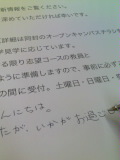 新情報をご覧ください。
求めていただければ幸いです。
詳細は同封のオープンキャンパスチラシを
学見学に応じています。
る限り志望コースの教員と
ように準備しますので、事前に必ず
の間に受付。土曜日・日曜日・祭
んにちは。
たが、いかがお過ご